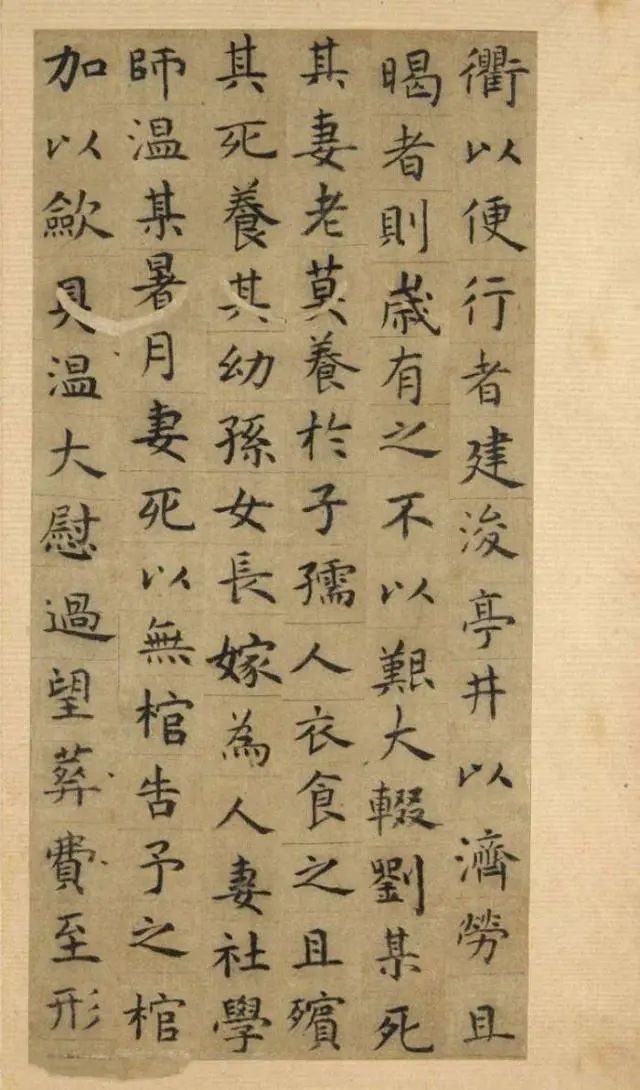 衢以便行者建浚亭井以濟勞且
暍者則歲有之不以艱大輟劉某死
其妻老莫養於子孺人衣食之且殯
其死養其幼孫女長嫁為人妻社學
師温某暑月妻死以無棺告予之棺
加以歛具温大慰過望葬費至形